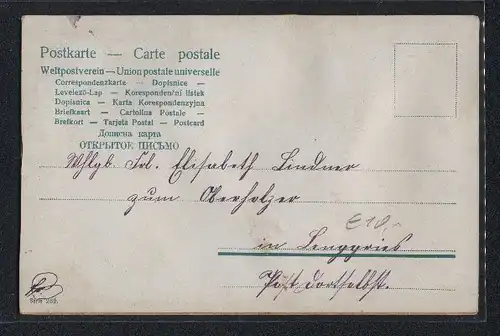 Postkarte — Carte postale
Weltpostverein — Union postale universelle
Correspondenzkarte — Dopisnice —
Levelező-Lap — Korespondenčni listek
Dopisnica — Karta Korespondenzyjna
Briefkaart — Cartolina Postale —
Brefkort — Tarjeta Postal — Postcard
Дописна карта
ОТКРЫТОЕ ПИСЬМО
Whlgb. Frl. Elisabeth Lindner
zum Oberholzer
€10,-
in Lenggries
Post dortselbst.